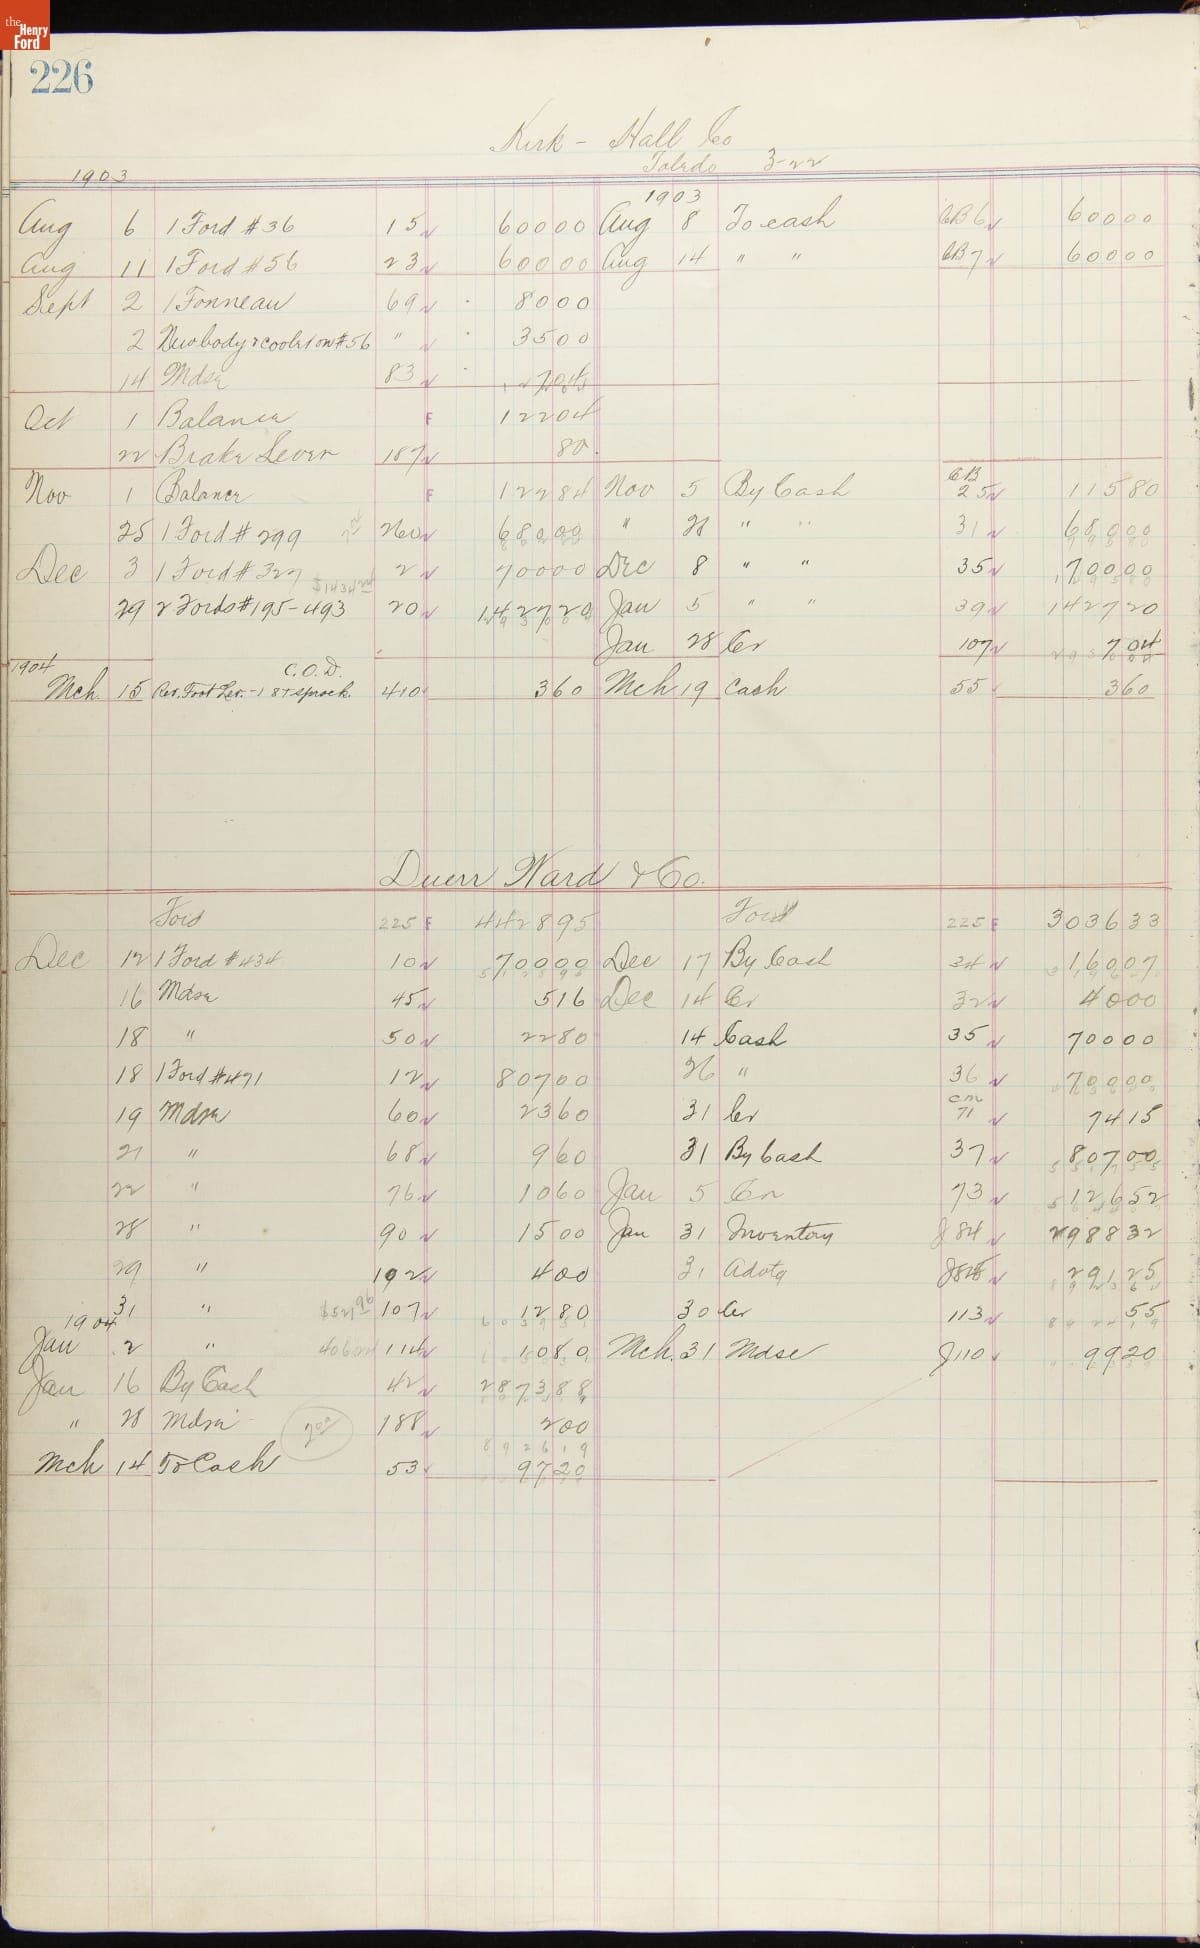 the Henry Ford
226
Kirk - Hall Co
Toledo 3-22
1903
1903
Aug 6 1 Ford # 36 15 60000 Aug 8 To cash CB6 60000
Aug 11 1 Ford # 56 23 60000 Aug 14 " " CB7 60000
Sept 2 1 Tonneau 69 8000
2 New body & cooler on # 56 " 3500
14 Mdse 83 704
Oct 1 Balance F 12204
22 Brake Lever 187 80
Nov 1 Balance F 12284 Nov 5 By Cash CB 25 11580
25 1 Ford # 299 260 68000 " 28 " " 31 68000
Dec 3 1 Ford # 327 2 70000 Dec 8 " " 35 70000
29 2 Fords # 195-493 20 142720 Jan 5 " " 39 142720
Jan 28 Cr 107 704
1904
C.O.D.
Mch 15 Rev. Foot Lev. - 1 8T sprock. 410 360 Mch 19 Cash 55 360
Duerr Ward & Co.
Ford 225 F 442895 Ford 225 F 303633
Dec 12 1 Ford # 434 10 70000 Dec 17 By Cash 34 16007
16 Mdse 45 516 Dec 14 Cr 32 4000
18 " 50 2280 14 Cash 35 70000
18 1 Ford # 471 12 80700 26 " 36 70000
19 Mdse 60 2360 31 Cr cm 71 7415
21 " 68 960 31 By Cash 37 80700
22 " 76 1060 Jan 5 Cr 73 12652
28 " 90 1500 Jan 31 Inventory J84 298832
29 " 102 400 31 Advtg 29125
31 " 107 1280 30 Cr 113 55
1904
Jan 2 " 114 1080 Mch. 31 Mdse J110 9920
Jan 16 By Cash 42 287388
" 28 Mdse 200 188 200
892619
Mch 14 To Cash 53 9720